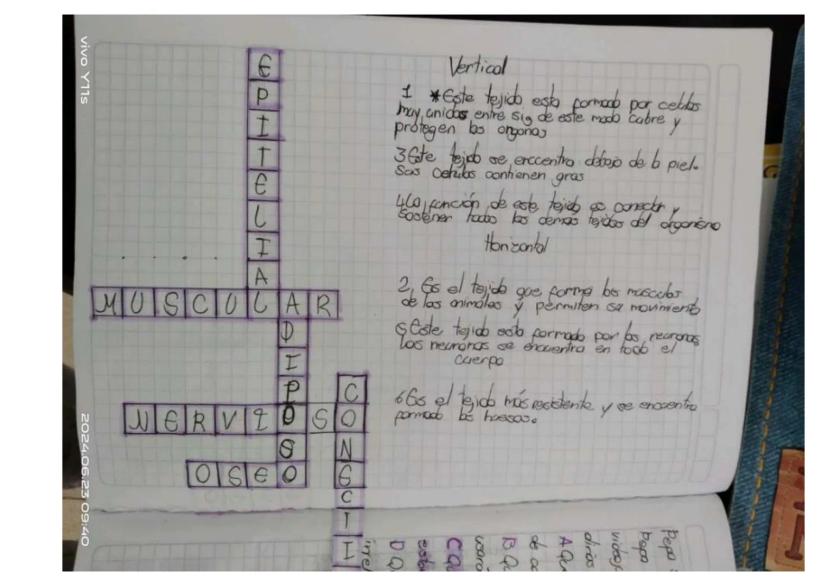 vivo Y11s
2024.06.23 09:40
EPITELIAL
MUSCULAR
ADIPOSO
NERVIOSO
CONECTI
OSEO
Vertical
1 *Este tejido esta formado por celulas
muy unidas entre si, de este modo cubre y
protegen los organos
3 Este tejido se encuentra debajo de la piel.
Sus celulas contienen gras
4 La función de este tejido es conectar y
sostener todos los demás tejidos del organismo
Horizontal
2, Es el tejido que forma los musculos
de los animales y permiten su movimiento
5 Este tejido esta formado por las neuronas
Las neuronas se encuentra en todo el
cuerpo
6 Es el tejido más resistente y se encuentra
formado los huesos.
Pepa
Pepa
vidas
otras
A Que
de
B Qu
C Qu
estan
D Q